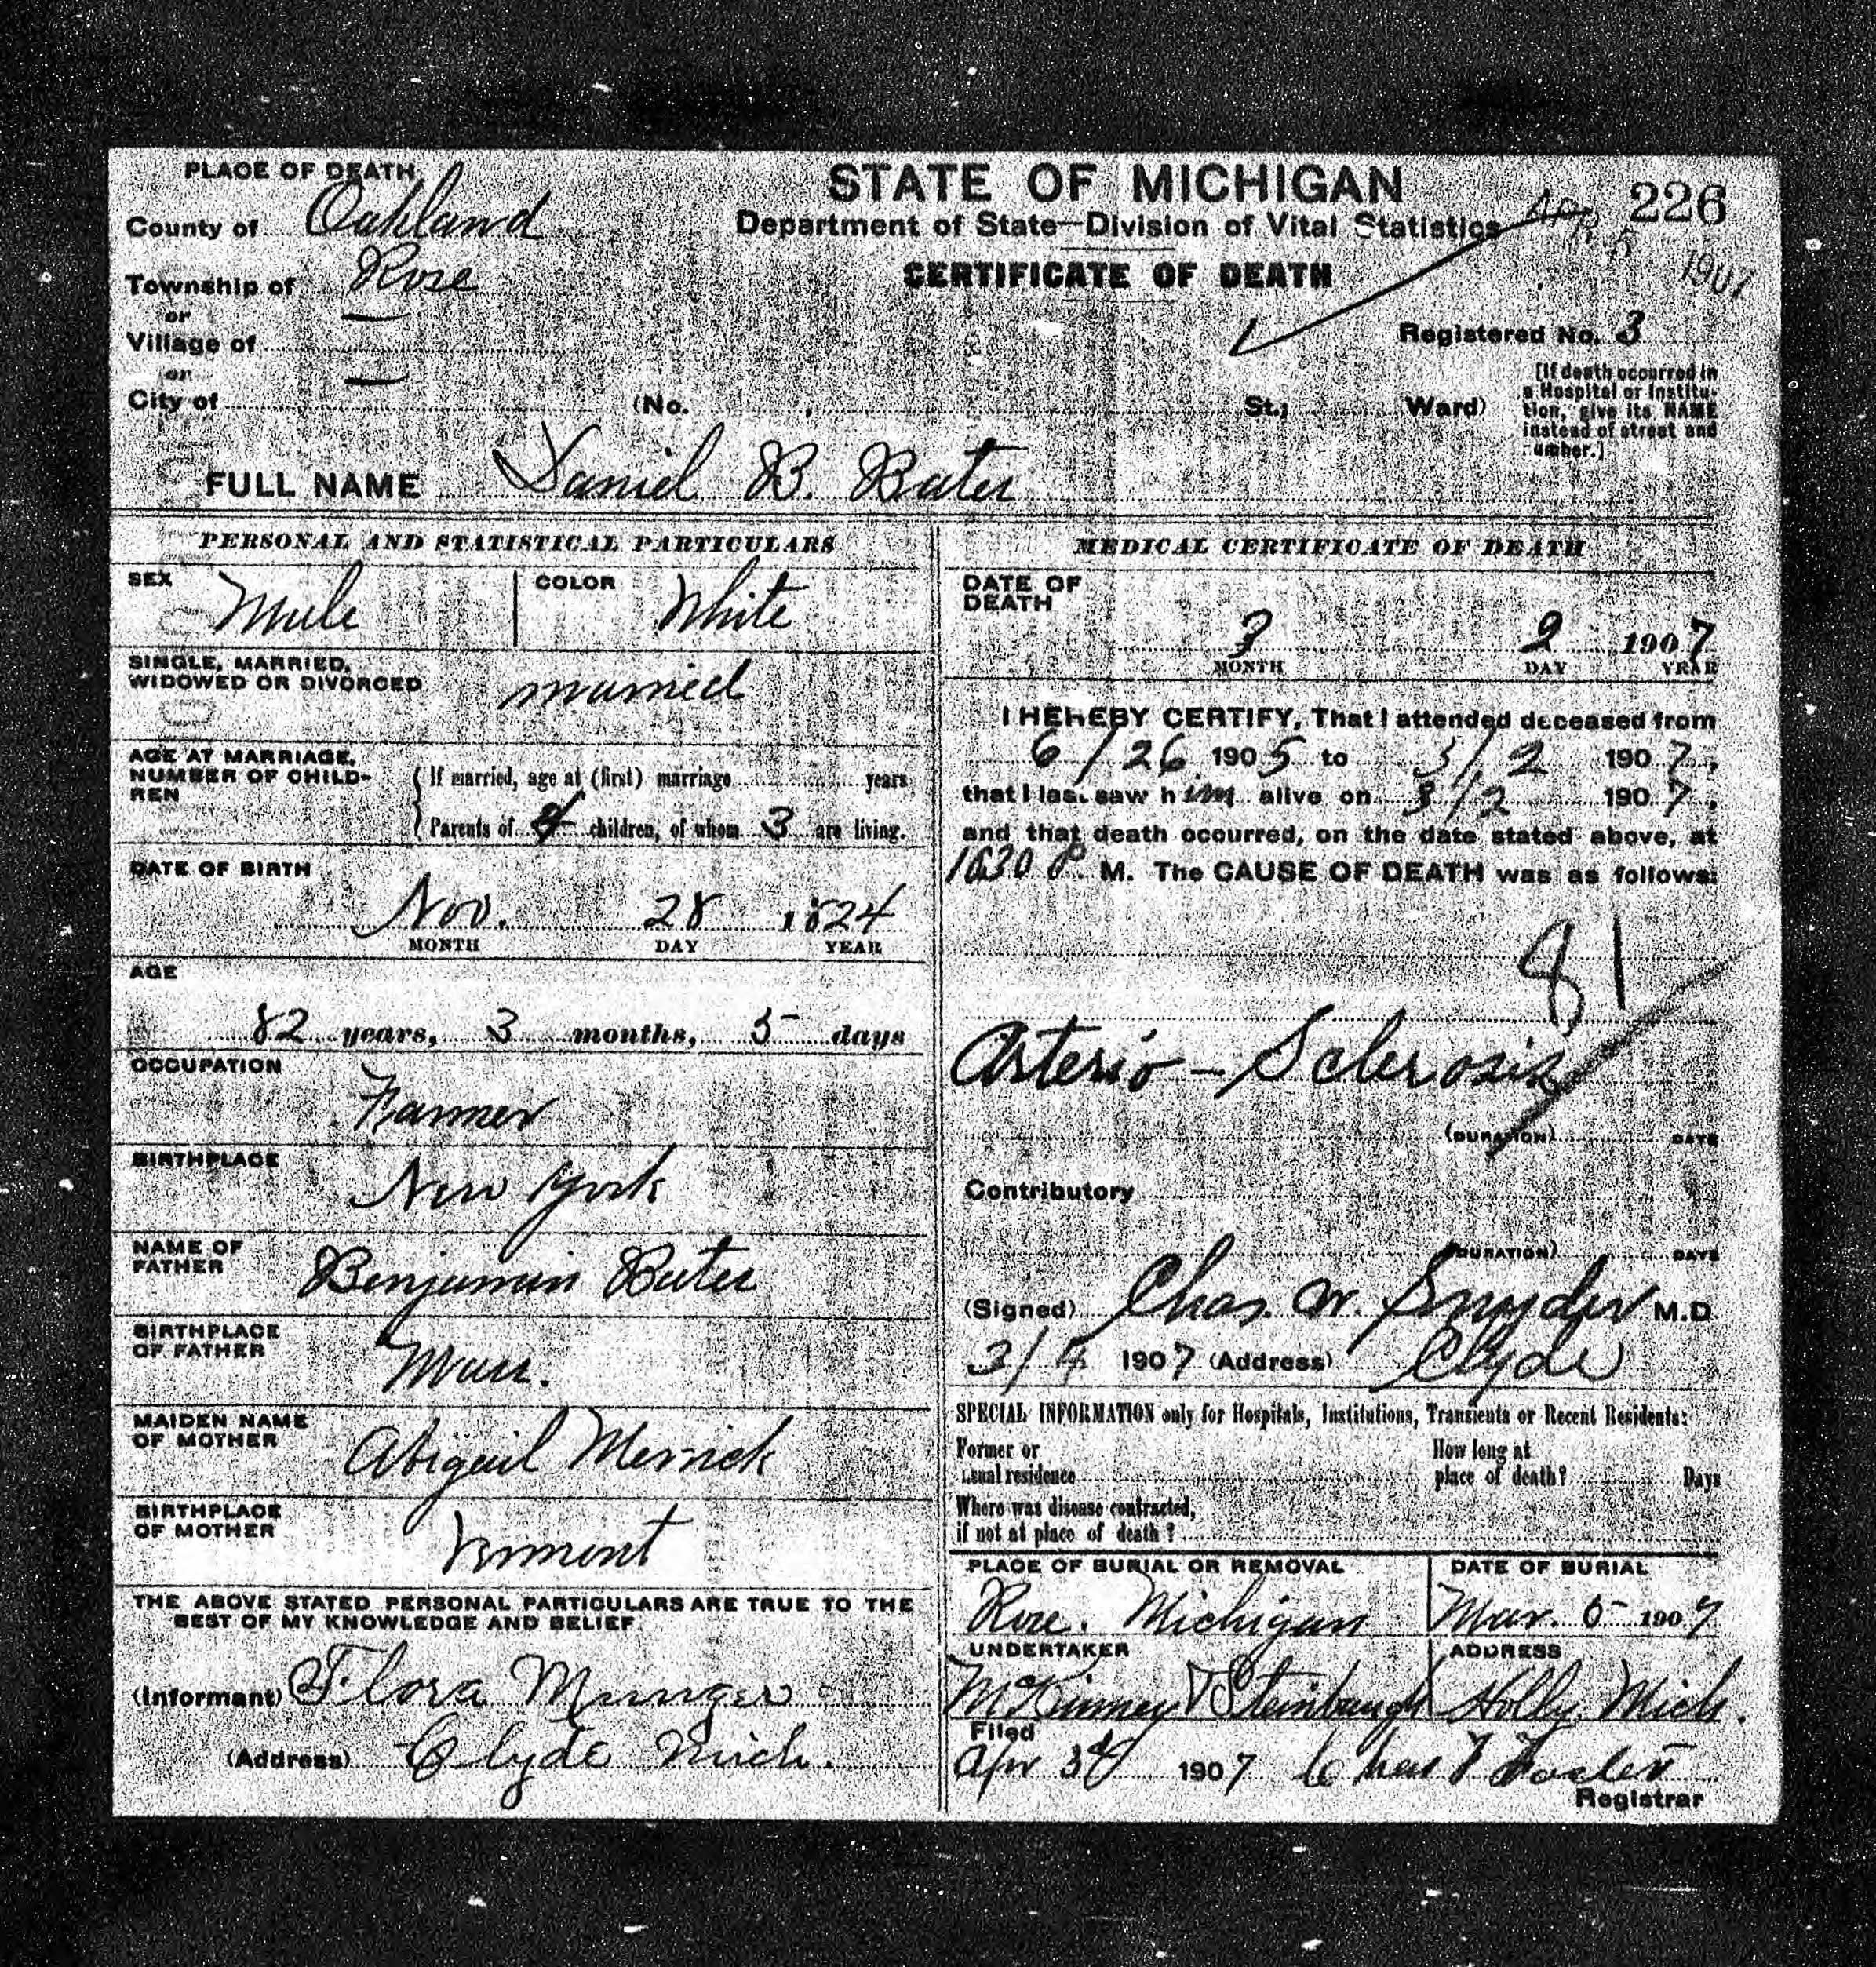 PLACE OF DEATH
County of Oakland
Township of Rose
or
Village of —
or
City of —
STATE OF MICHIGAN
Department of State—Division of Vital Statistics
CERTIFICATE OF DEATH
226
APR 5 1907
Registered No. 3
(No. , St.; Ward)
[If death occurred in
a Hospital or Institu-
tion, give its NAME
instead of street and
number.]
FULL NAME Daniel B. Bater
PERSONAL AND STATISTICAL PARTICULARS
SEX Male
COLOR White
SINGLE, MARRIED,
WIDOWED OR DIVORCED married
AGE AT MARRIAGE,
NUMBER OF CHILD-
REN
If married, age at (first) marriage years
Parents of 4 children, of whom 3 are living.
DATE OF BIRTH
Nov. 28 1824
MONTH DAY YEAR
AGE
82 years, 3 months, 5 days
OCCUPATION
Farmer
BIRTHPLACE
New York
NAME OF
FATHER Benjamin Bater
BIRTHPLACE
OF FATHER Mass.
MAIDEN NAME
OF MOTHER Abigail Merrick
BIRTHPLACE
OF MOTHER Vermont
THE ABOVE STATED PERSONAL PARTICULARS ARE TRUE TO THE
BEST OF MY KNOWLEDGE AND BELIEF
(Informant) Flora Munger
(Address) Clyde Mich.
MEDICAL CERTIFICATE OF DEATH
DATE OF
DEATH
3 2 1907
MONTH DAY YEAR
I HEREBY CERTIFY, That I attended deceased from
6/26 1905 to 3/2 1907,
that I last saw him alive on 3/2 1907,
and that death occurred, on the date stated above, at
1030 P. M. The CAUSE OF DEATH was as follows:
81
Arterio-Sclerosis
(DURATION) DAYS
Contributory
(DURATION) DAYS
(Signed) Chas. W. Snyder M.D.
3/4 1907 (Address) Clyde
SPECIAL INFORMATION only for Hospitals, Institutions, Transients or Recent Residents:
Former or
usual residence
How long at
place of death? Days
Where was disease contracted,
if not at place of death?
PLACE OF BURIAL OR REMOVAL
Rose. Michigan
DATE OF BURIAL
Mar. 5 1907
UNDERTAKER
McKinney & Steinbaugh
ADDRESS
Holly, Mich.
Filed
Apr 3d 1907 Foster
Registrar